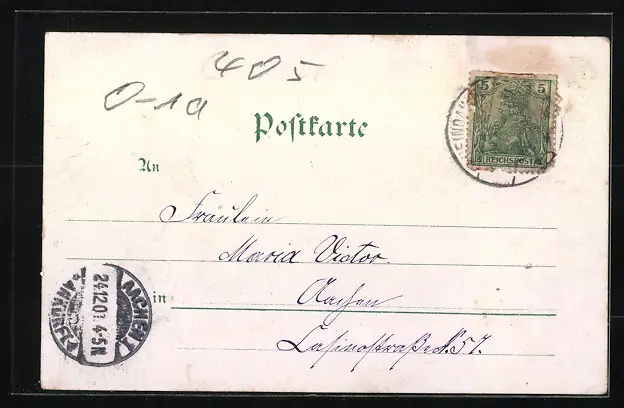 405
0-10
Postkarte
5 5
REICHSPOST
An
Fräulein
Maria Victor.
in Aachen
Casinostraße N. 57.
AACHEN 1
24.12.01. 4-5N